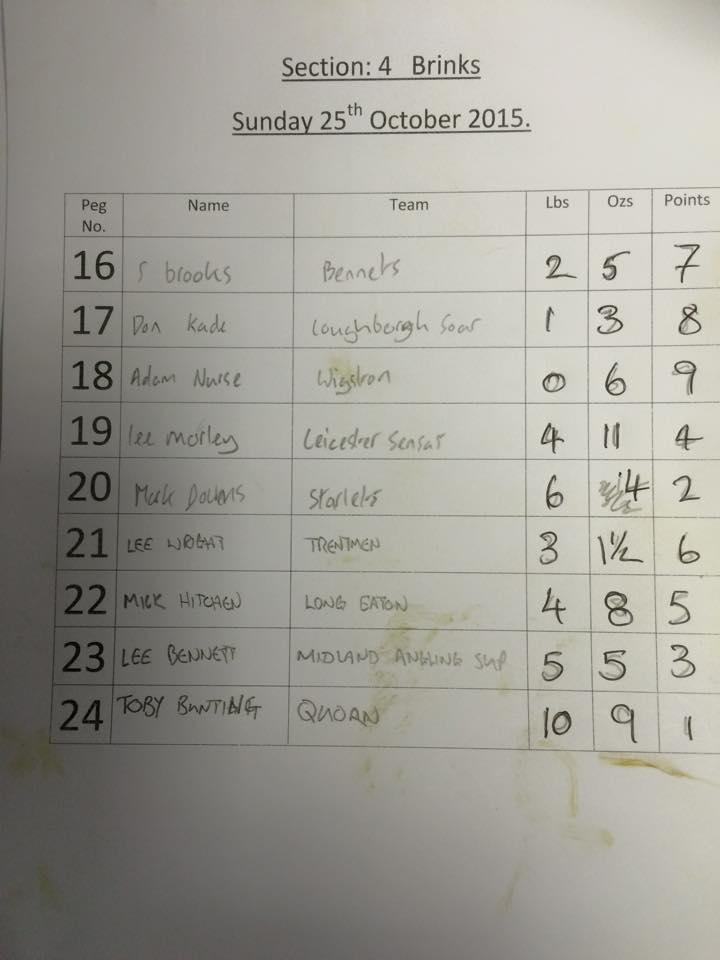 Section: 4 Brinks
Sunday 25th October 2015.
Peg No. Name Team Lbs Ozs Points
16 S brooks Bennets 2 5 7
17 Don Kade Loughborgh Soar 1 3 8
18 Adam Nurse Wigston 0 6 9
19 lee morley Leicester Sensas 4 11 4
20 Mark Downs Starlets 6 14 2
21 LEE WRIGHT TRENTMEN 3 1½ 6
22 MICK HITCHEN LONG EATON 4 8 5
23 LEE BENNETT MIDLAND ANGLING SUP 5 5 3
24 TOBY BUNTING QUOAN 10 9 1